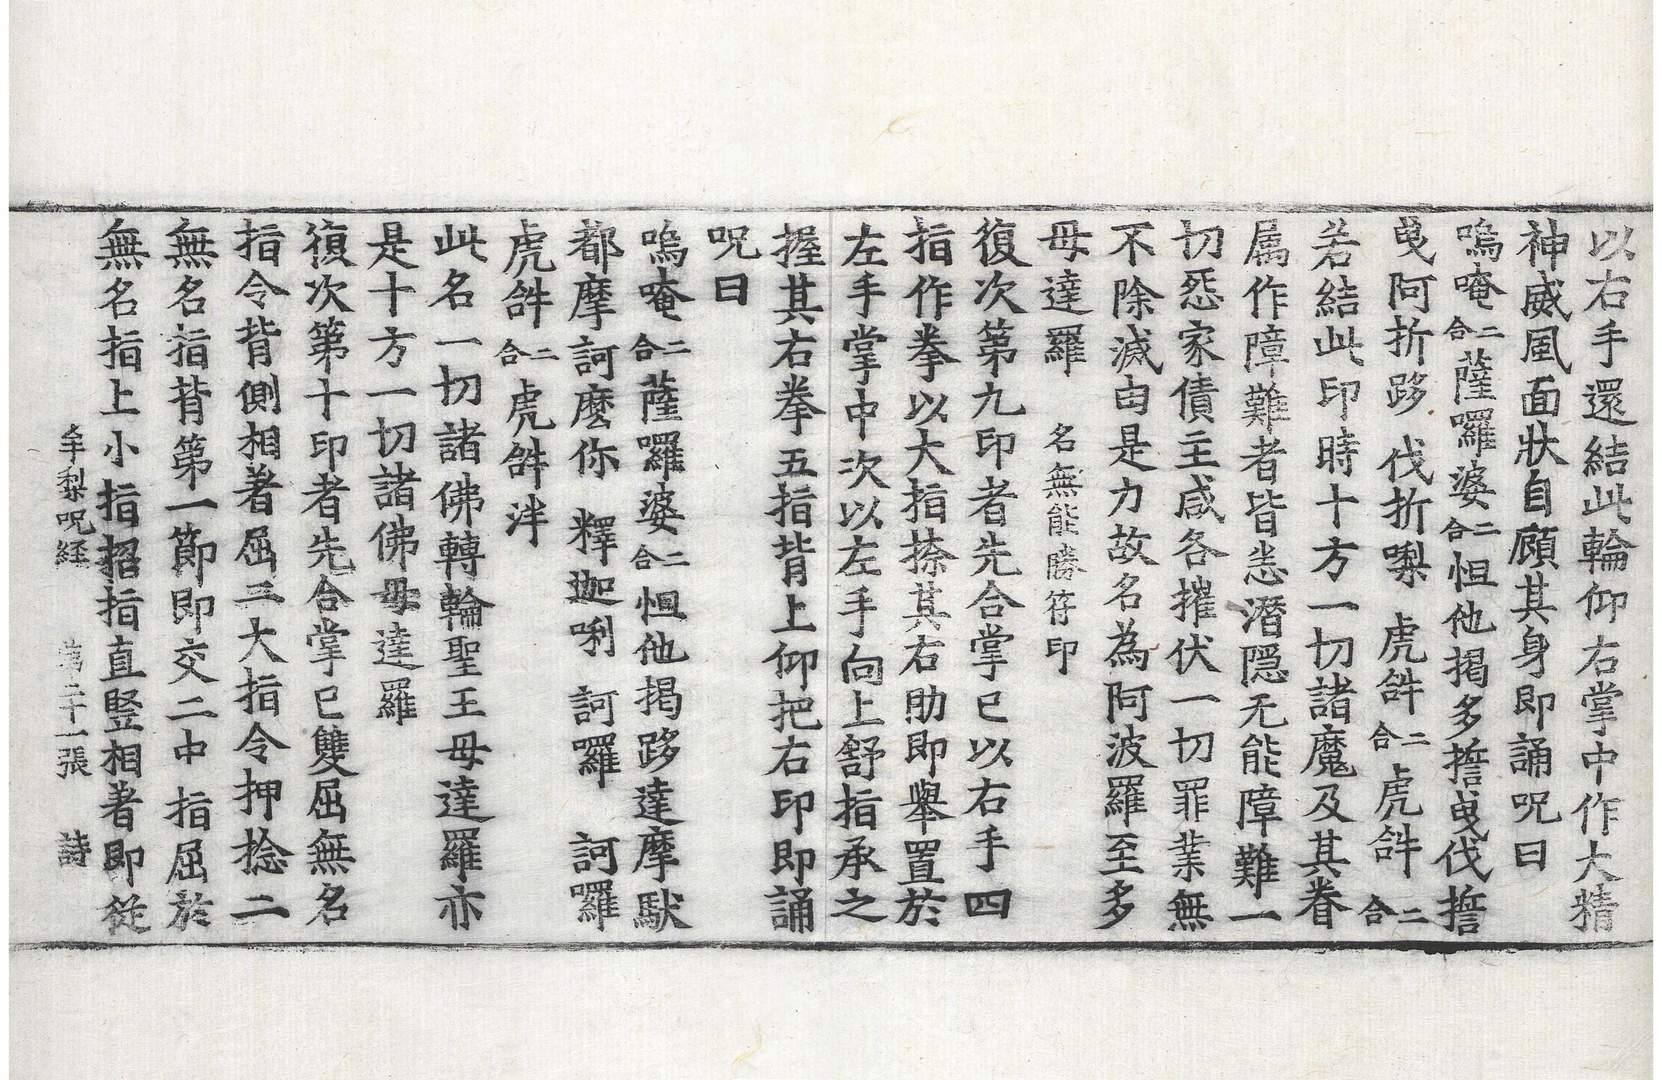 以右手還結此輪仰右掌中作大精
神威風面狀自顧其身即誦呪曰
嗚唵二合薩囉婆二合怛他揭多擔曳伐擔
曳阿折跢 伐折㘑 虎𤙖二合虎𤙖二合
若結此印時十方一切諸魔及其眷
属作障難者皆悉潛隱无能障難一
切惡家債主咸各摧伏一切罪業無
不除滅由是力故名為阿波羅至多
母達羅 名無能勝符印
復次第九印者先合掌已以右手四
指作拳以大指捺其右肋即舉置於
左手掌中次以左手向上舒指承之
握其右拳五指背上仰把右印即誦
呪曰
嗚唵二合薩囉婆二合怛他揭跢達摩馱
都摩訶麼你 釋迦唎 訶囉 訶囉
虎𤙖二合虎𤙖泮
此名一切諸佛轉輪聖王母達羅亦
是十方一切諸佛母達羅
復次第十印者先合掌已雙屈無名
指令背側相著屈三大指令押捻二
無名指背第一節即交二中指屈於
無名指上小指招指直竪相著即從
牟梨呪経 第二十一張 詩